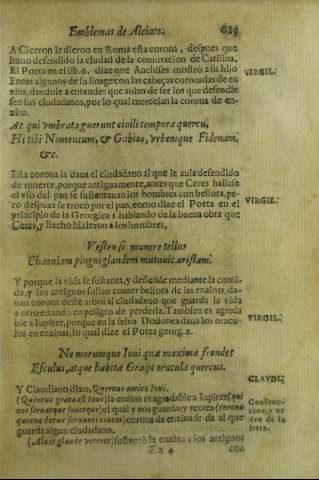 Emblemas de Alciato.
A Ciceron le dieron en Roma esta corona, despues que
huuo defendido la ciudad de la coniuracion de Catilina.
El Poeta en el lib. 6. dize que Anchises mostrò a su hijo
VIRGIL.
Eneas algunos de su linage con las cabeças coronadas de en
zina, dandole a entender que auian de ser los que defendie
sen sus ciudadanos, por lo qual merecian la corona de en-
zina.
At qui vmbrata guerunt ciuili tempora quercu,
Hi tibi Nomentum, & Gabios, vrbemque Fidenam,
&c.
Esta corona la daua el ciudadano al que le auia defendido
de muerte, porque antiguamente, antes que Ceres hallase
el vso del pan se sustentauan los hombres con bellota, pe-
ro despues se trocò por el pan, como dize el Poeta en el
VIRGIL.
principio de la Georgica 1. hablando de la buena obra que
Ceres, y Bacho hizieron a los hombres,
Vestro si munere tellus
Chaoniam pingui glandem mutauit arista.
Y porque la vida se sustenta, y defiende mediante la comi-
da, y los antiguos solian comer bellota de las enzinas, da-
uan corona deste arbol al ciudadano que guarda la vida
a otro estando en peligro de perderla. Tambien es agrada
ble a Iupiter, porque en la selua Dodonea daua los oracu-
VIRGIL.
los en enzinas, lo qual dize el Poeta georg. 2.
Ne morumque Ioui quæ maxima frondet
Esculus, atque habitæ Graijs oracula quercus.
CLAVDI.
Y Claudiano dixo, Quercus amica Ioui.
(Quercus grata est Ioui) la enzina es agradable a Iupiter (qui
Construc-
nos seruatque fouetque) el qual y nos guarda, y recrea (corona
cion, y or
querna datur seruanti ciues) corona de enzina se da al que
den de la
guarda algun ciudadano.
letra.
(Aluit glande veteres) sustentò la enzina a los antiguos
Xx 4
con